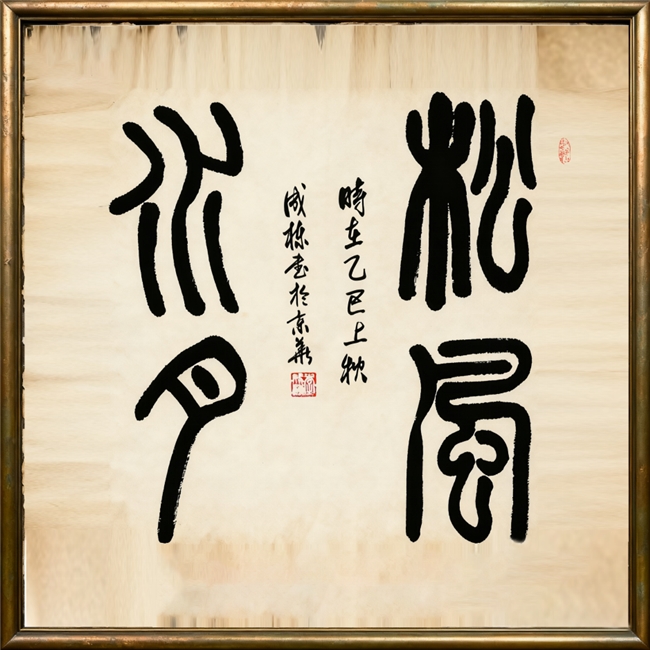 松風
水月
時在乙巳上秋
成棟书於京華